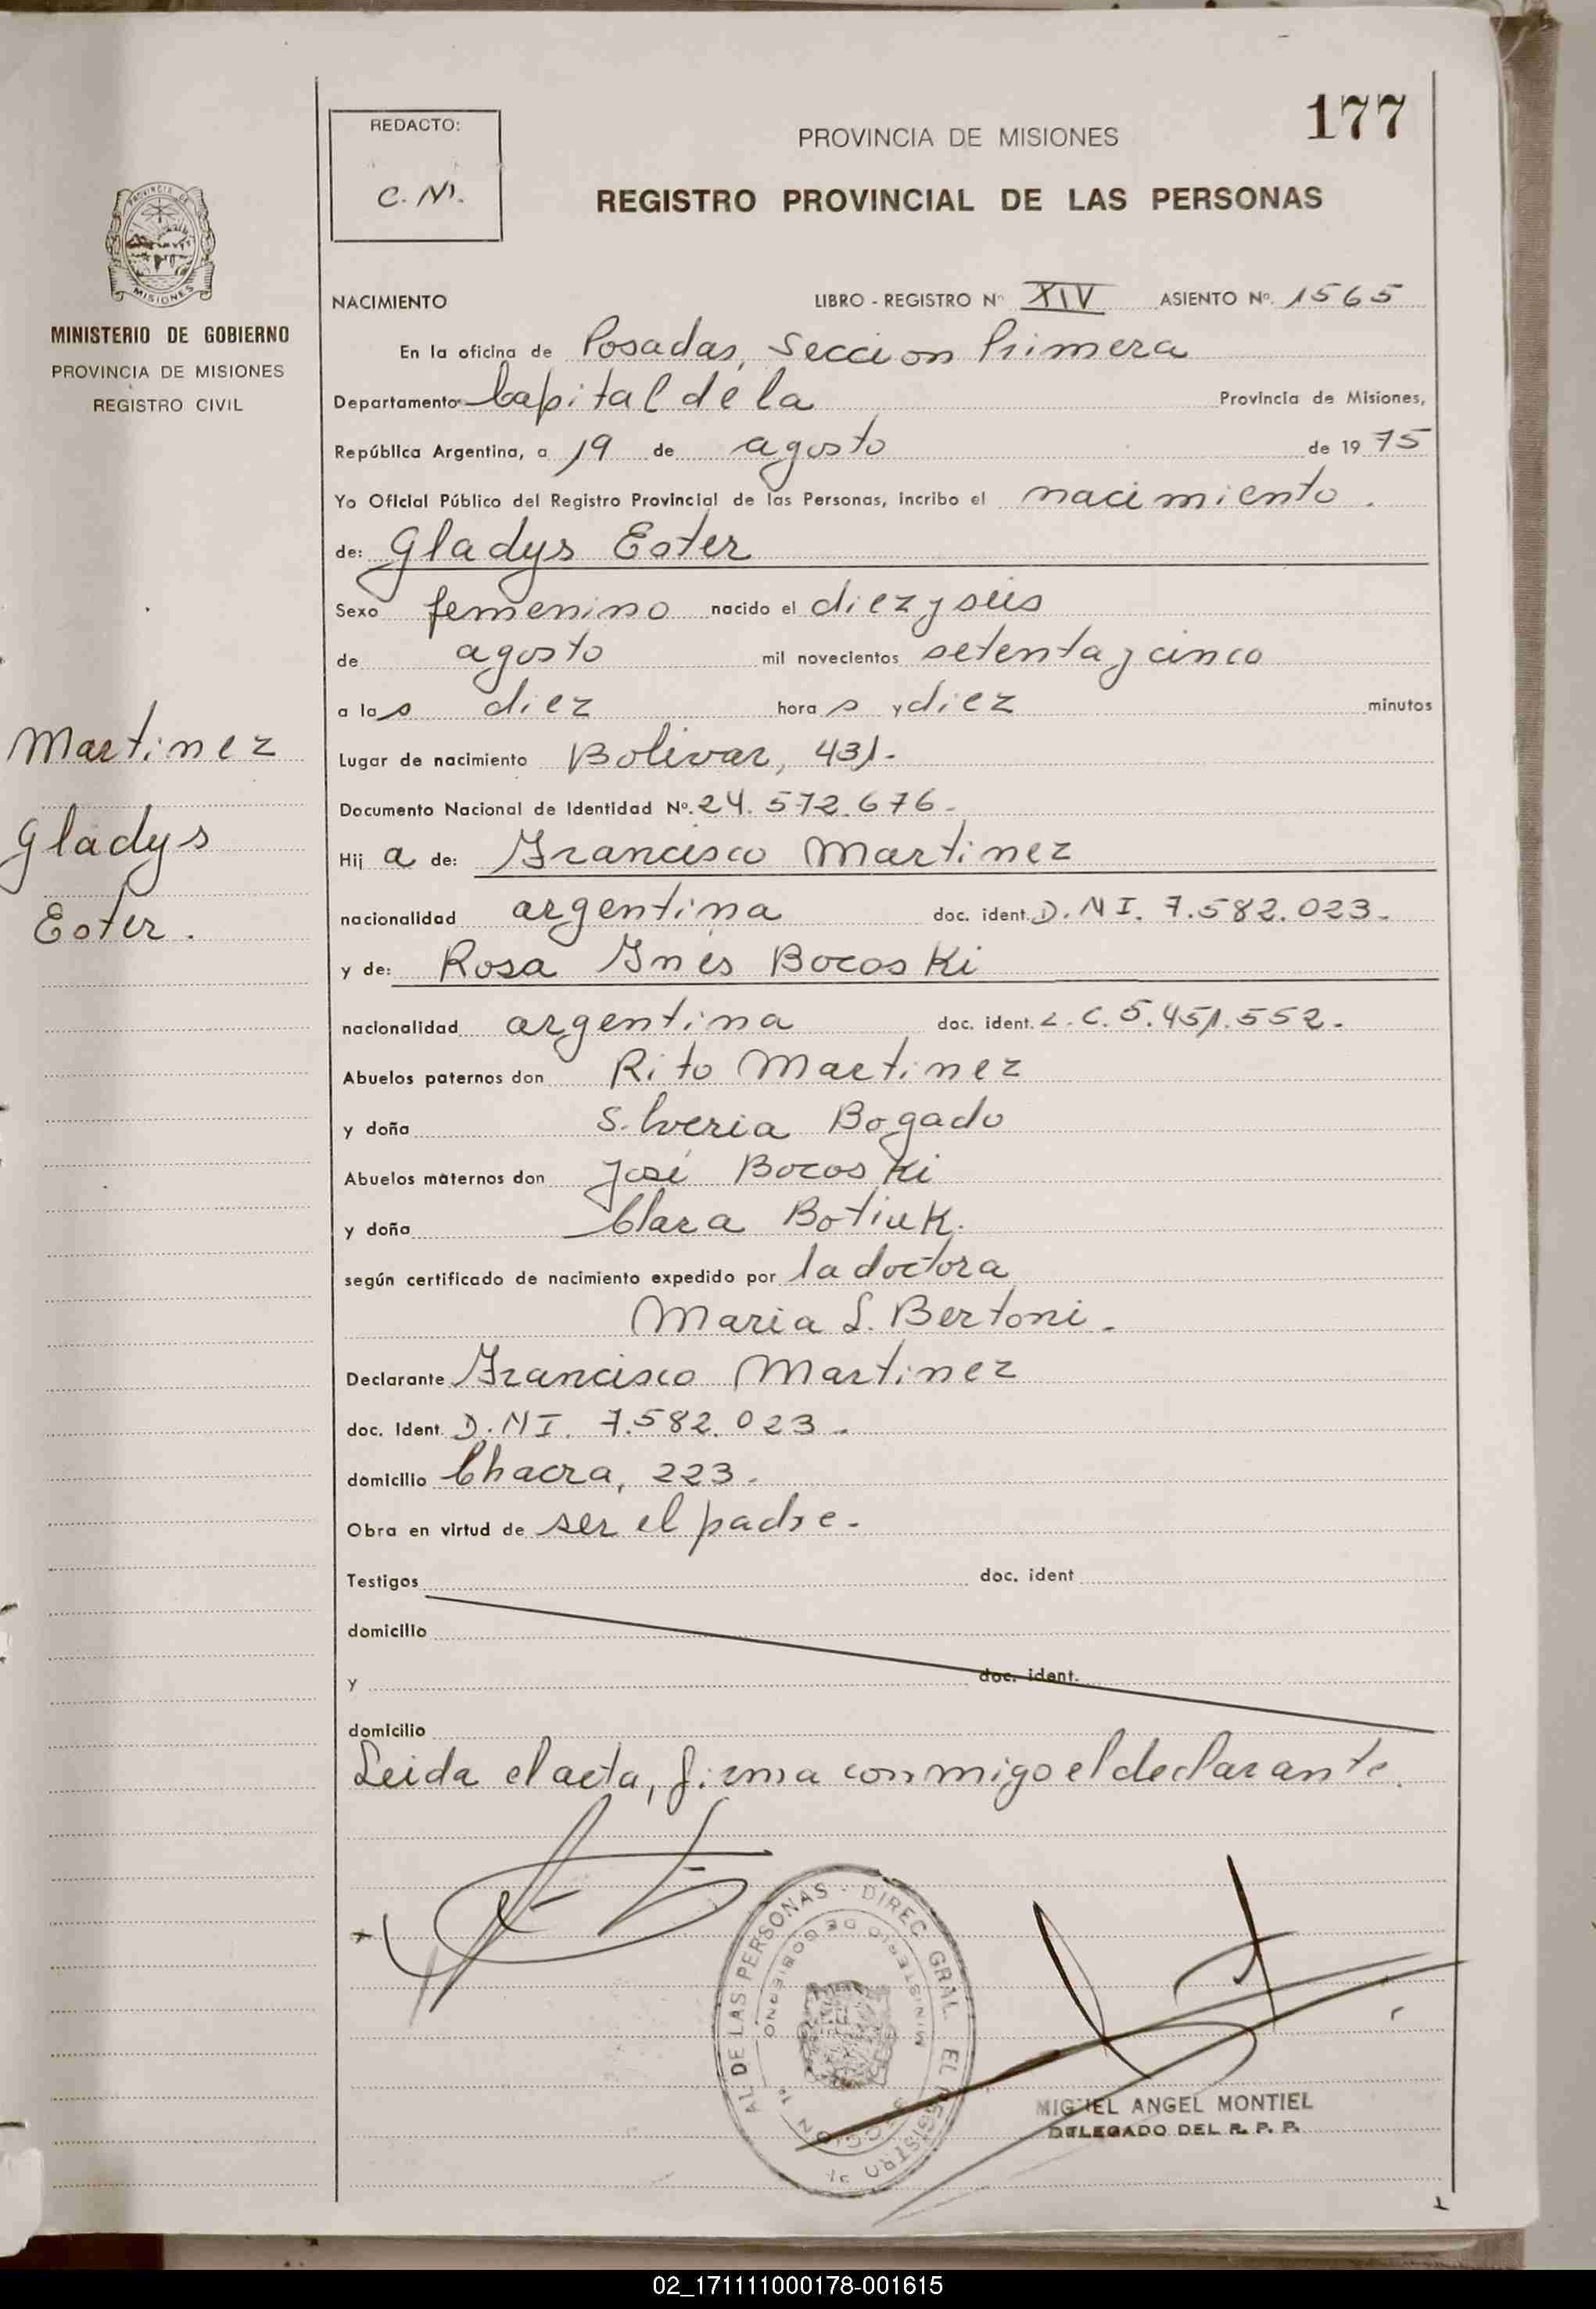 177
REDACTO:
C. M.
PROVINCIA DE MISIONES
REGISTRO PROVINCIAL DE LAS PERSONAS
PROVINCIA DE
MISIONES
MINISTERIO DE GOBIERNO
PROVINCIA DE MISIONES
REGISTRO CIVIL
Martinez
Gladys
Ester.
NACIMIENTO LIBRO - REGISTRO Nº XIV ASIENTO Nº. 1565
En la oficina de Posadas, Seccion Primera
Departamento Capital de la Provincia de Misiones,
República Argentina, a 19 de agosto de 19 75
Yo Oficial Público del Registro Provincial de las Personas, incribo el nacimiento.
de: Gladys Ester
Sexo femenino nacido el diez y seis
de agosto mil novecientos setenta y cinco
a las diez horas y diez minutos
Lugar de nacimiento Bolivar, 431.-
Documento Nacional de Identidad Nº. 24.572.676-
Hij a de: Francisco Martinez
nacionalidad argentina doc. ident. D.N I. 7.582.023-
y de: Rosa Inés Bocoski
nacionalidad argentina doc. ident. L.C. 5.451.552.-
Abuelos paternos don Rito Martinez
y doña Silveria Bogado
Abuelos maternos don José Bocoski
y doña Clara Botiuk.
según certificado de nacimiento expedido por la doctora
Maria S. Bertoni.-
Declarante Francisco Martinez
doc. Ident. D.N I. 7.582.023-
domicilio Chacra, 223-
Obra en virtud de ser el padre-
Testigos doc. ident
domicilio
y doc. ident.
domicilio
Leida el acta, firma conmigo el declarante.
AL DE LAS PERSONAS - DIREC. GRAL. EL REGISTRO
MINISTERIO DE GOBIERNO
SECCION 1ª
MIGUEL ANGEL MONTIEL
DELEGADO DEL R. P. P.
02_171111000178-001615